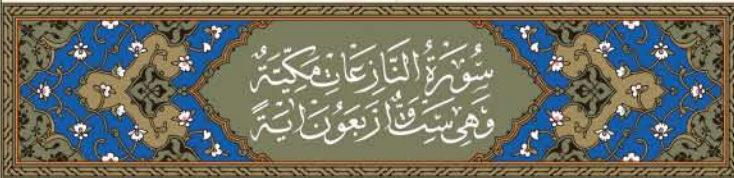 سُورَةُ النَّازِعَاتِ مَكِّيَّةٌ
وَهِيَ سِتٌّ وَأَرْبَعُونَ اٰيَةً